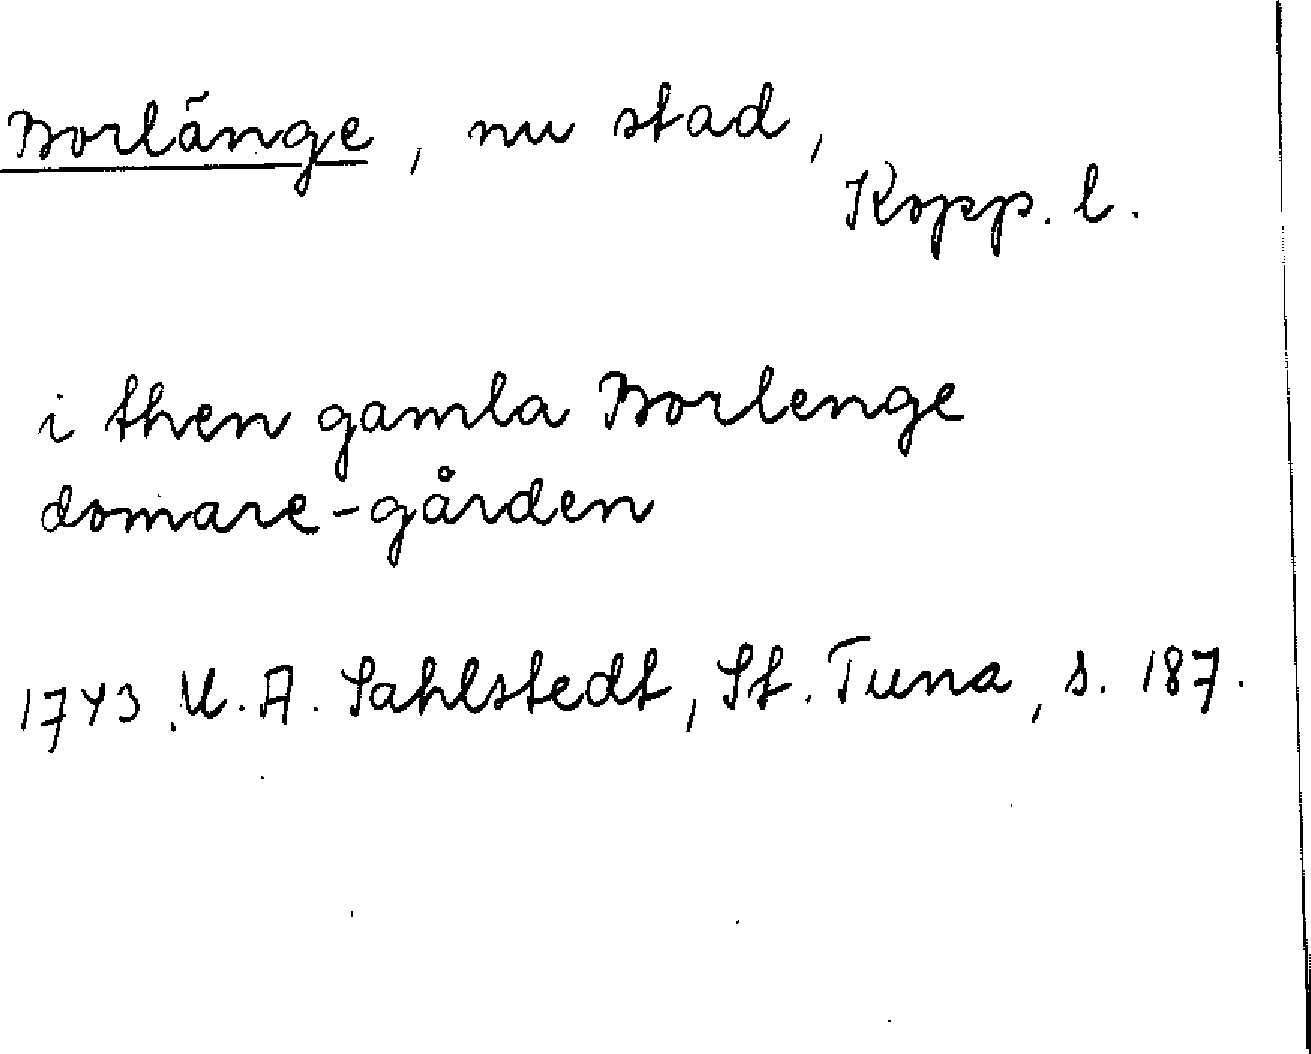 Borlänge, nu stad,
Kopp. l.
i then gamla Borlenge
domare-gården
1743 U. A. Sahlstedt, St. Tuna, s. 187.